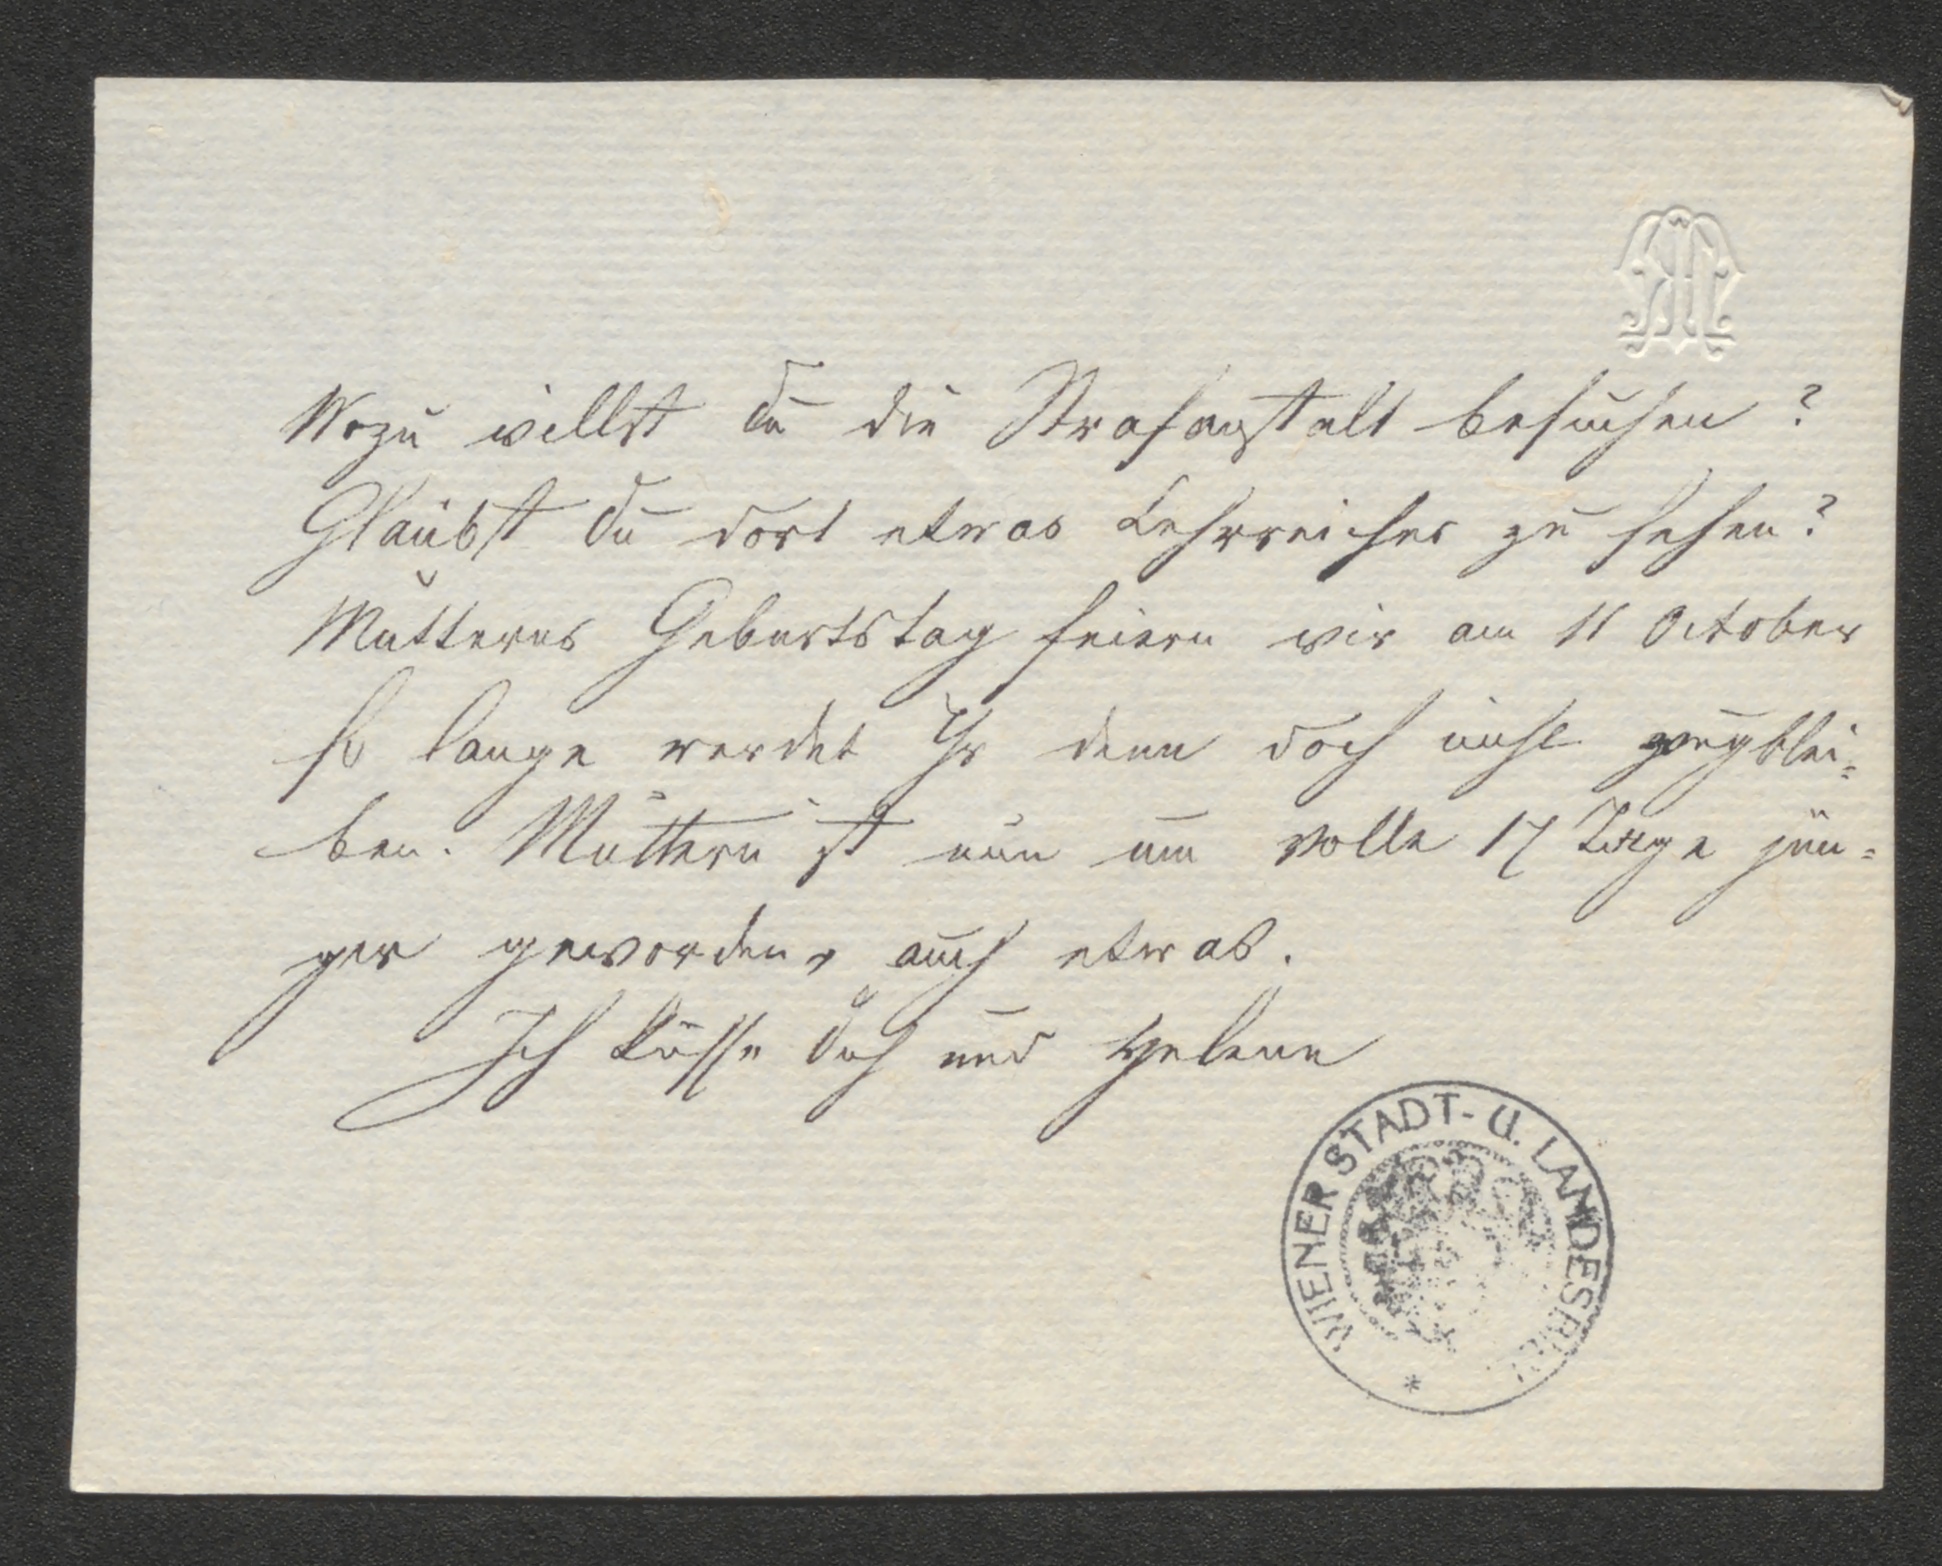 Wozu willst Du die Strafanstalt besuchen?
Glaubst Du dort etwas Lehrreiches zu sehen?
Mutterns Geburtstag feiern wir am 11 October
so lange werdet Ihr denn doch nicht wegblei=
ben. Muttern ist nun um volle 17 Tage jün=
ger geworden, auch etwas.
Ich küsse Dich und Helene
WIENER STADT- U. LANDESBIBL.